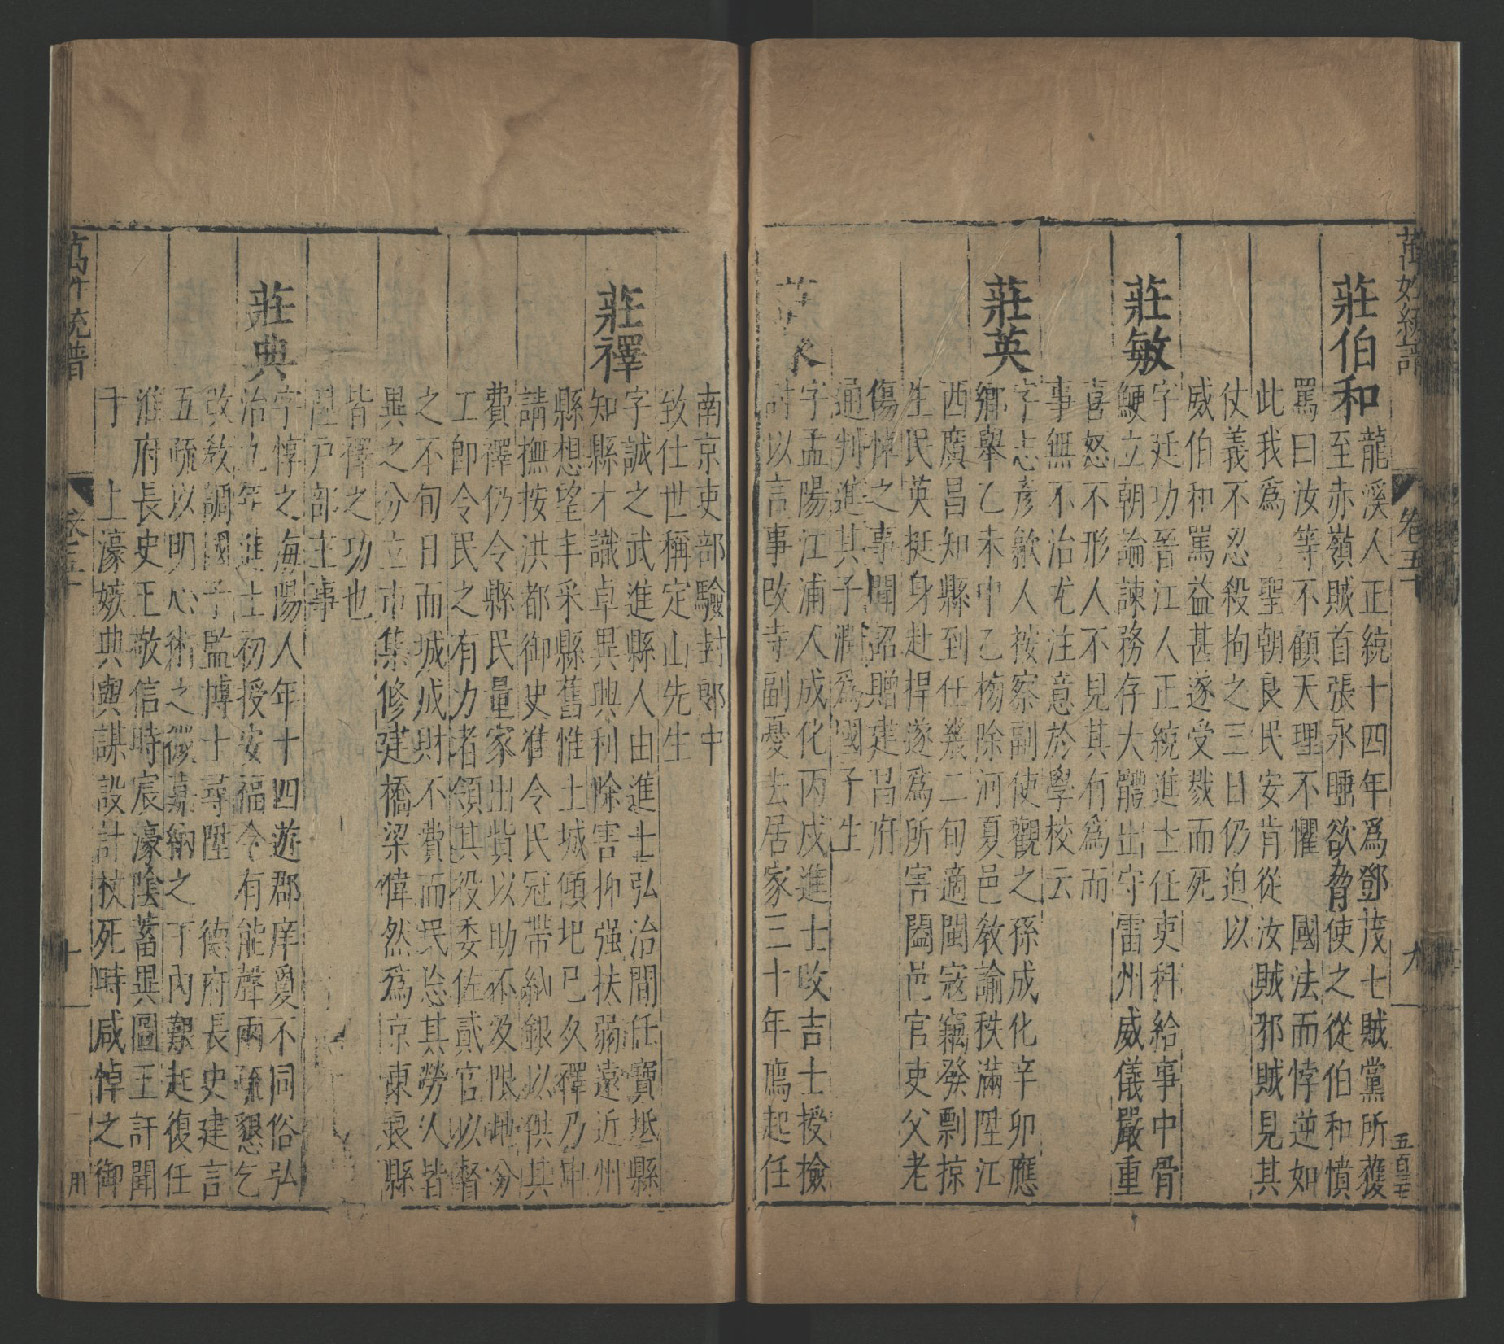 萬姓統譜
卷五十
九
五百三七
莊伯和龍溪人正統十四年爲鄧茂七賊黨所獲
至赤嶺賊首張永睡欲脅使之從伯和憤
罵曰汝等不顧天理不懼 國法而悖逆如
此我爲 聖朝良民安肯從汝賊邪賊見其
仗義不忍殺拘之三日仍迫以
威伯和罵益甚遂受戮而死
莊敏字廷功晉江人正統進士任吏科給事中骨
鯁立朝論諫務存大體出守雷州威儀嚴重
喜怒不形人不見其有爲而
事無不治尤注意於學校云
莊英字志彥歙人按察副使觀之孫成化辛卯應
鄉舉乙未中乙榜除河夏邑敎諭秩滿陞江
西廣昌知縣到任纔二旬適閩寇竊發剽掠
生民英挺身赴捍遂爲所害闔邑官吏父老
傷悼之事聞詔贈建昌府
通判進其子淵爲國子生
莊 字孟陽江浦人成化丙戌進士改吉士授檢
討以言事改寺副憂去居家三十年薦起任
南京吏部驗封郎中
致仕世稱定山先生
莊襗字誠之武進縣人由進士弘治間任寶坻縣
知縣才識卓異興利除害抑强扶弱遠近州
縣想望丰采縣舊惟土城傾圯已久襗乃申
請撫按洪都御史准令民冠帶納銀以供其
費襗仍令縣民量家出貲以助不及限地分
工卽令民之有力者領其役委佐貳官以督
之不旬日而城成財不費而民忘其勞人皆
異之分立市集修建橋梁偉然爲京東良縣
皆襗之功也
陞戶部主事
莊典字惇之海陽人年十四遊郡庠憂不同俗弘
治九年進士初授安福令有能聲兩疏懇乞
改敎調國子監博士尋陞 德府長史建言
五疏以明心術之微嘉納之丁內艱起復任
淮府長史王敬信時宸濠陰蓄異圖王訐聞
于 上濠嫉典與謀設計杖死時咸悼之御
萬姓統譜
卷五十
十
用